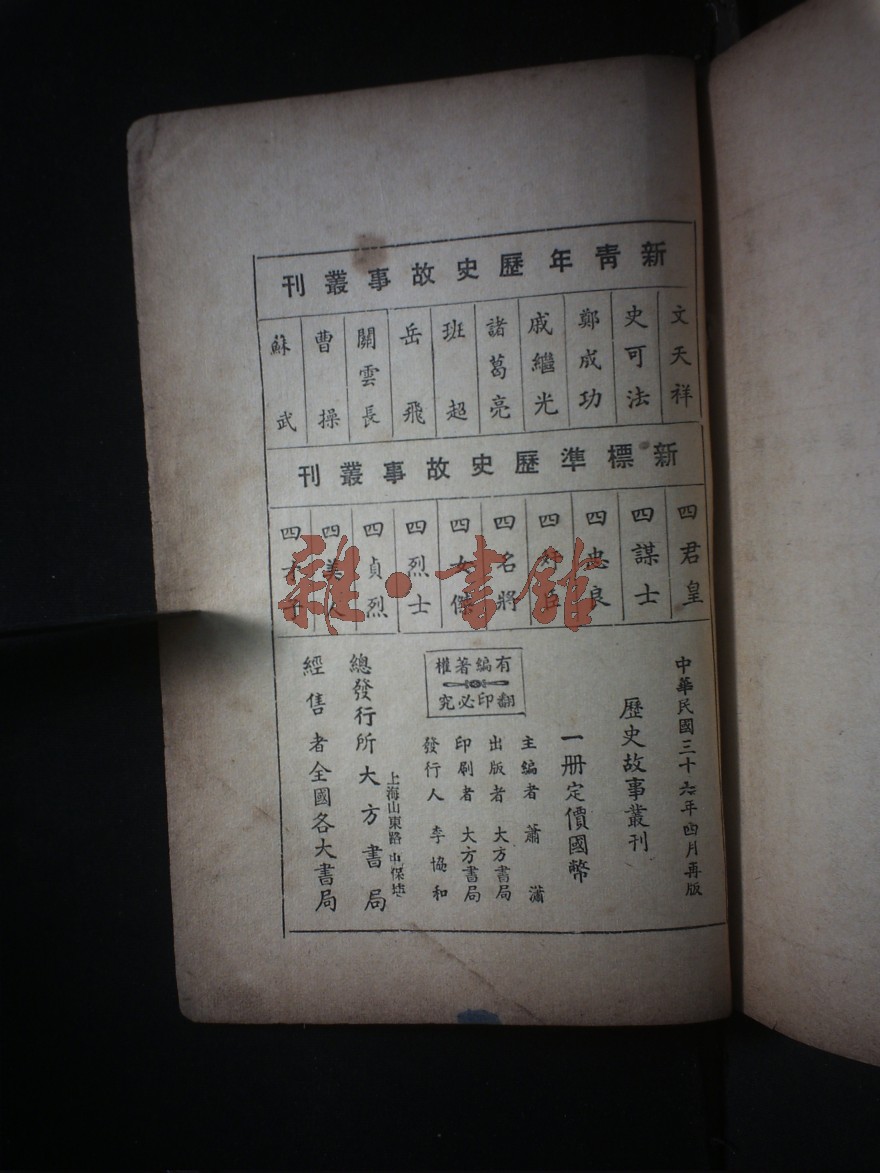 新青年歷史故事叢刊
文天祥
史可法
鄭成功
戚繼光
諸葛亮
班超
岳飛
關雲長
曹操
蘇武
新標準歷史故事叢刊
四君皇
四謀士
四忠良
四奸臣
四名將
四女傑
四烈士
四貞烈
四美人
四才子
雜·書館
中華民國三十六年四月再版
歷史故事叢刊
一册定價國幣
有編著權
翻印必究
主編者 蕭瀟
出版者 大方書局
印刷者 大方書局
發行人 李協和
上海山東路中保坊
總發行所 大方書局
經售者 全國各大書局